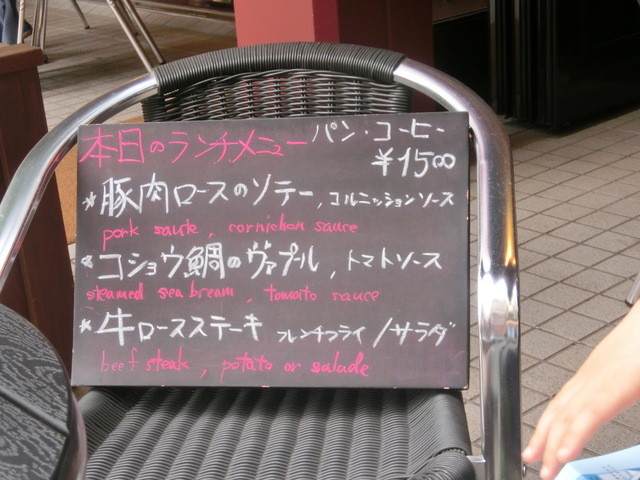 本日のランチメニュー パン・コーヒー
¥1500
*豚肉ロースのソテー, コルニッションソース
pork saute, cornichon sauce
*コショウ鯛のヴァプール, トマトソース
steamed sea bream, tomato sauce
*牛ロースステーキ フレンチフライ/サラダ
beef steak, potato or salade